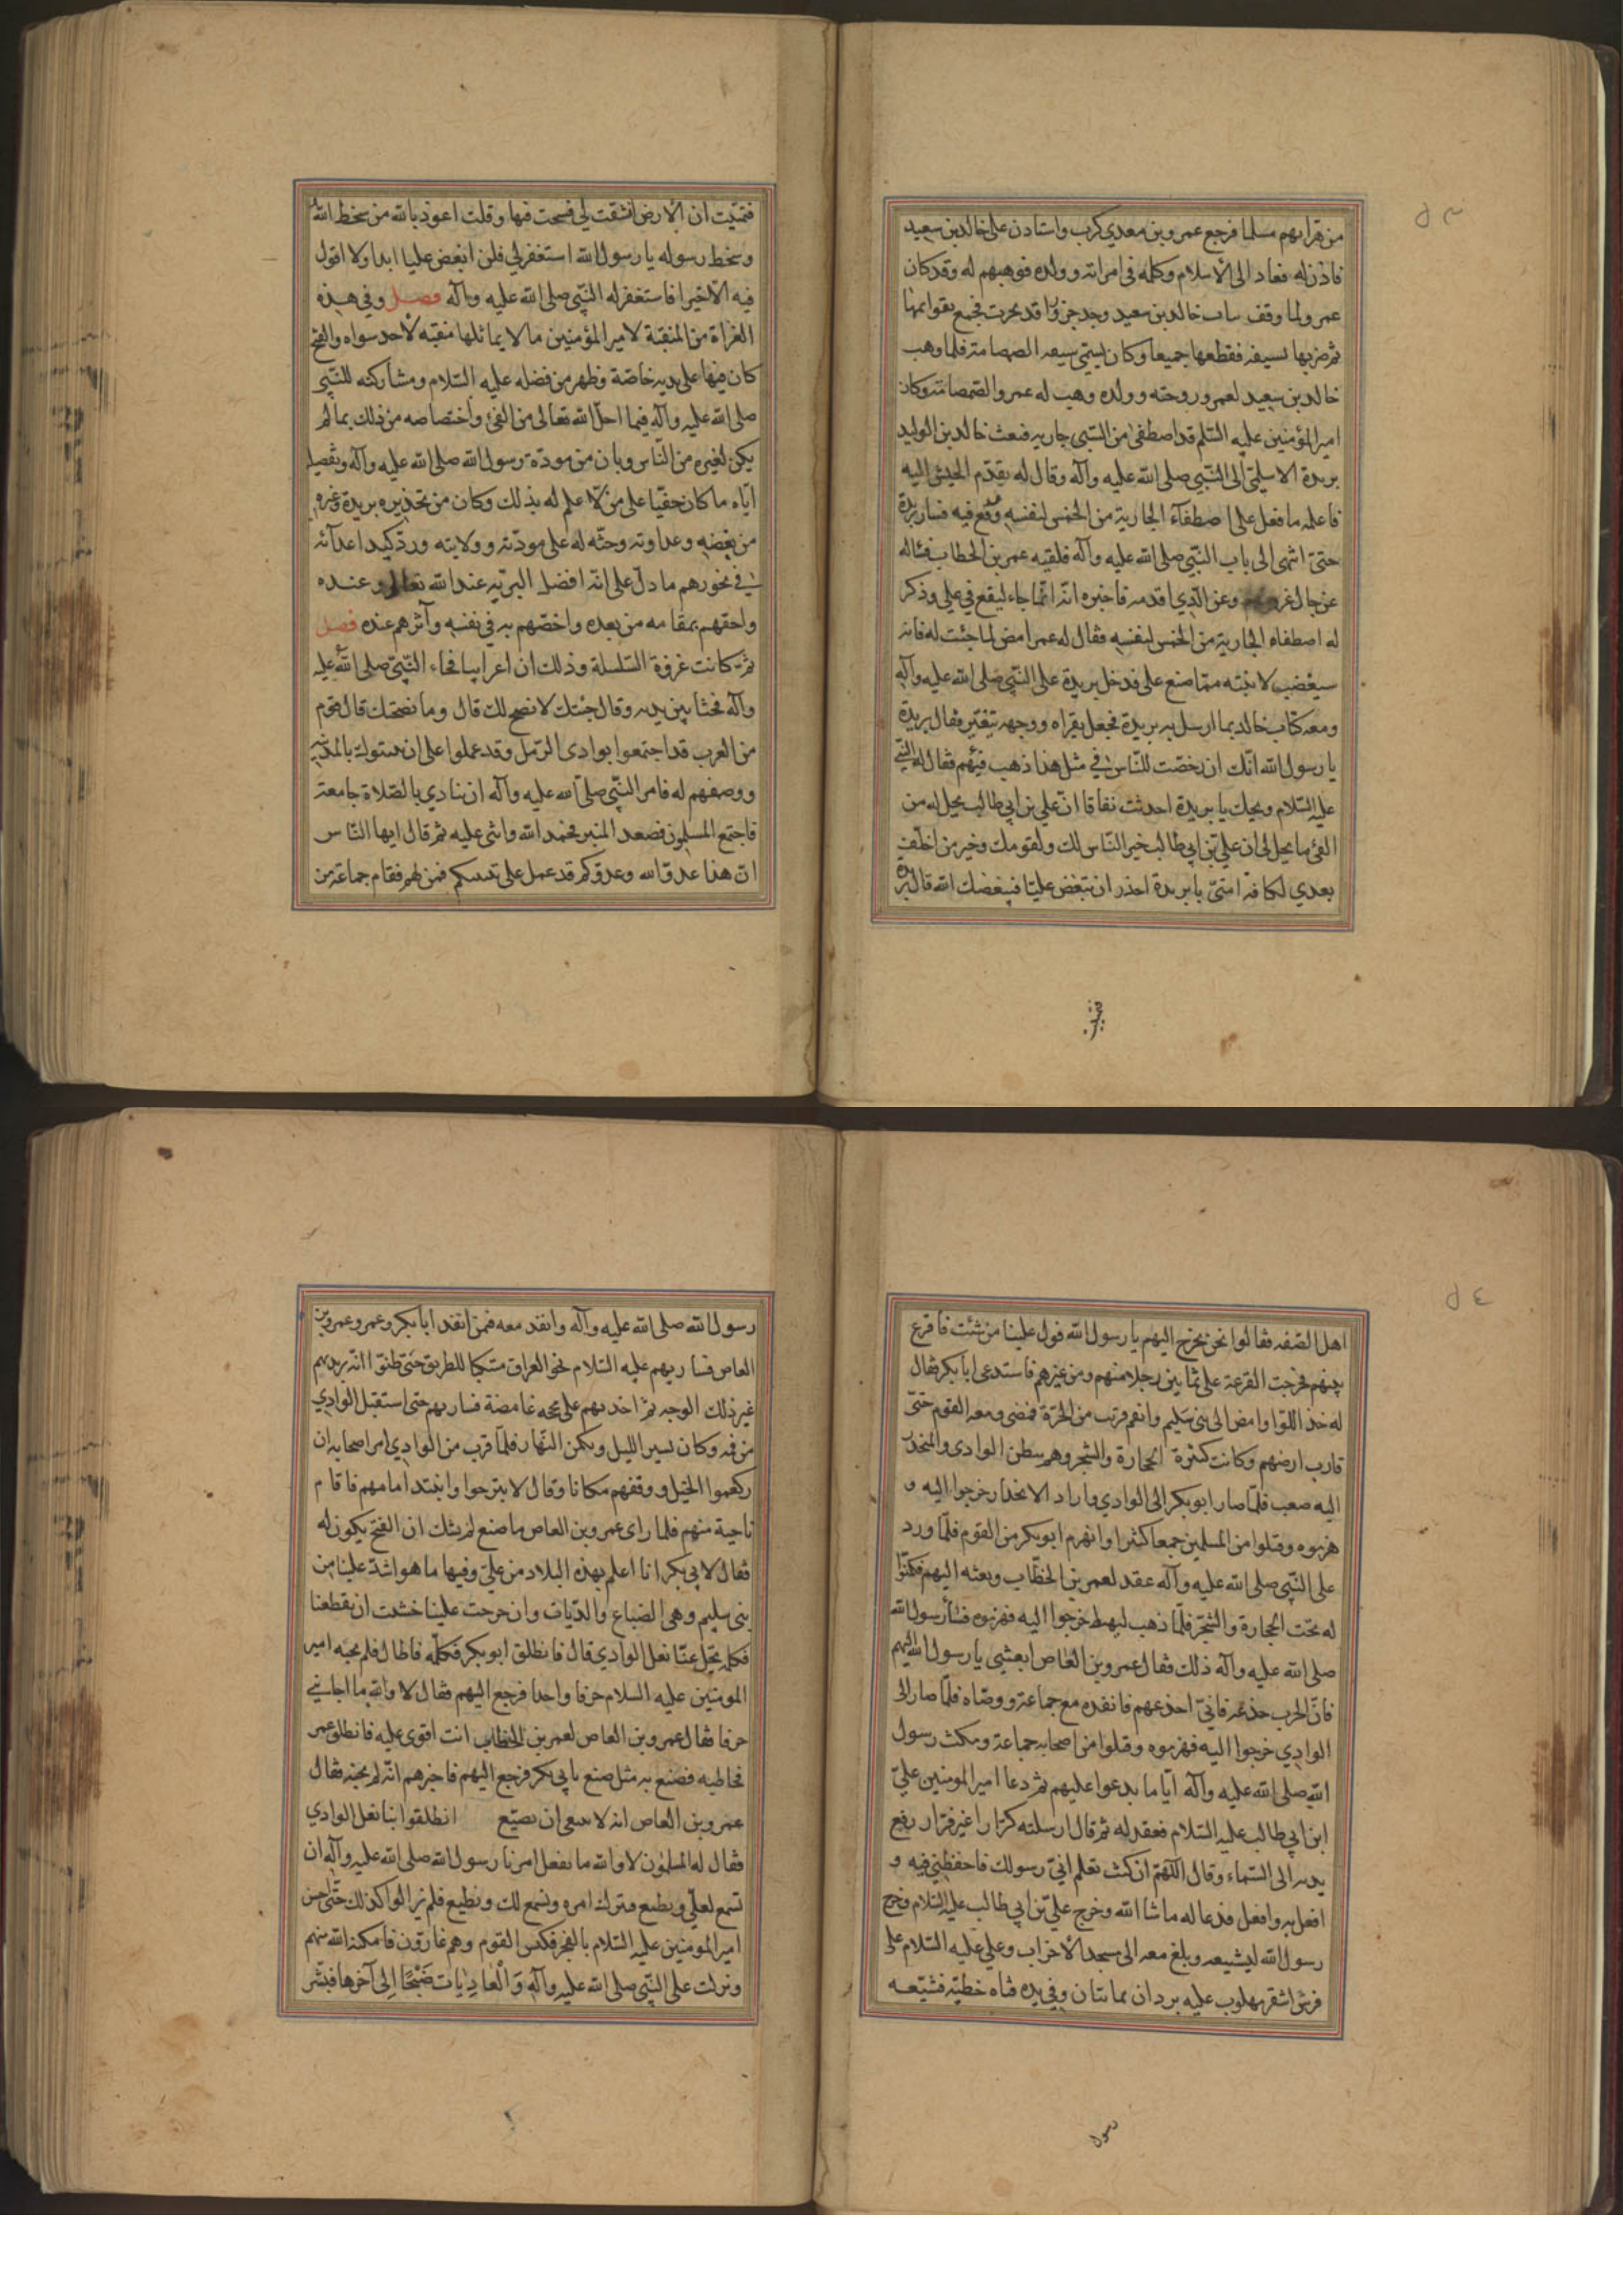 ٥٣
من هرابهم مسلما فرجع عمرو بن معدي كرب واستاذن على خالد بن سعيد
فاذن له فعاد الى الاسلام وكلمه في امراته وولده فوهبهم له وقد كان
عمرو لما وقف بباب خالد بن سعيد وجد جزورا قد نحرت فجمع قوائمها
ثم ضربها بسيفه فقطعها جميعا وكان يسمى سيفه الصمصامة فلما وهب
خالد بن سعيد لعمرو زوجته وولده وهب له عمرو الصمصامة وكان
امير المؤمنين عليه السلم قد اصطفى من السبي جارية فبعث خالد بن الوليد
بريدة الاسلمي الى النبي صلى الله عليه وآله وقال له تقدم الجيش اليه
فاعلمه ما فعل علي اصطفاء الجارية من الخمس لنفسه وقع فيه فسار بريدة
حتى انتهى الى باب النبي صلى الله عليه وآله فلقيه عمر بن الخطاب فساله
عن حال وعن الذي اقدمه فاخبره انه انما جاء ليقع في علي وذكر
له اصطفاه الجارية من الخمس لنفسه فقال له عمر امض لما جئت له فانه
سيغضب لابنته مما صنع علي فدخل بريدة على النبي صلى الله عليه وآله
ومعه كتاب خالد بما ارسل به بريدة فجعل يقراه ووجهه يتغير فقال بريدة
يا رسول الله انك ان رخصت للناس في مثل هذا ذهب فيئهم فقال له النبي
عليه السلام ويحك يا بريدة احدثت نفاقا ان علي بن ابي طالب يحل له من
الفئ ما يحل لي ان علي بن ابي طالب خير الناس لك ولقومك وخير من اخلف
بعدي لكافة امتي يا بريدة احذر ان تبغض عليا فيبغضك الله قال بريدة
فتمنيت ان الارض انشقت لي فسحت فيها وقلت اعوذ بالله من سخط الله
وسخط رسوله يا رسول الله استغفر لي فلن ابغض عليا ابدا ولا اقول
فيه الا خيرا فاستغفر له النبي صلى الله عليه وآله فصل وفي هذه
الغزاة من المنقبة لامير المؤمنين ما لا يماثلها منقبة لاحد سواه والفتح
كان فيها على يديه خاصة وظهر من فضله عليه السلام ومشاركته للنبي
صلى الله عليه وآله فيما احل الله تعالى من الفئ واختصاصه من ذلك بما لم
يكن لغيره من الناس وبان من مودة رسول الله صلى الله عليه وآله وتفضيله
اياه ما كان خفيا على من لا علم له بذلك وكان من تحذيره بريدة وغيره
من بغضه وعداوته وحثه له على مودته وولايته ورد كيد اعدآئه
في نحورهم ما دل على انه افضل البرية عند الله تعالى وعنده
واحقهم بمقامه من بعده واخصهم به في نفسه وآثرهم عنده فصل
ثم كانت غزوة السلسلة وذلك ان اعرابيا فجاء النبي صلى الله عليه
وآله فجثا بين يديه وقال جئتك لانصح لك قال وما نصحتك قال قوم
من العرب قد اجتمعوا بوادي الرمل وقد عملوا على ان يبيتوك بالمدينة
ووصفهم له فامر النبي صلى الله عليه وآله ان ينادي بالصلاة جامعة
فاجتمع المسلمون فصعد المنبر فحمد الله واثنى عليه ثم قال ايها الناس
ان هذا عدو الله وعدوكم قد عمل على تبييتكم فمن لهم فقام جماعة من
فتمنيت
٥٤
اهل الصفه فقالوا نحن نخرج اليهم يا رسول الله فول علينا من شئت فاقرع
بينهم فخرجت القرعة على ثمانين رجلا منهم ومن غيرهم فاستدعى ابا بكر فقال
له خذ اللوا وامض الى بني سليم وانهم قريب من الحرة فمضى ومعه القوم حتى
قارب ارضهم وكانت كثيرة الحجارة والشجر وهم ببطن الوادي والمنحدر
اليه صعب فلما صار ابو بكر الى الوادي واراد الانحدار خرجوا اليه و
هزموه وقتلوا من المسلمين جمعا كثيرا وانهزم ابو بكر من القوم فلما ورد
على النبي صلى الله عليه وآله عقد لعمر بن الخطاب وبعثه اليهم فكمنوا
له تحت الحجارة والشجر فلما ذهب ليهبط خرجوا اليه فهزموه فساء رسول الله
صلى الله عليه وآله ذلك فقال عمرو بن العاص ابعثني يا رسول الله اليهم
فان الحرب خدعه فاني اخدعهم فانفذه مع جماعة ووصاه فلما صار الى
الوادي خرجوا اليه فهزموه وقتلوا من اصحابه جماعة ومكث رسول
الله صلى الله عليه وآله اياما يدعوا عليهم ثم دعا امير المومنين علي
ابن ابي طالب عليه السلام فعقد له ثم قال ارسلته كرارا غير فرار رفع
يديه الى السماء وقال اللهم ان كنت تعلم اني رسولك فاحفظني فيه و
افعل به وافعل فدعا له ما شا الله وخرج علي بن ابي طالب عليه السلام وخرج
رسول الله ليشيعه وبلغ معه الى مسجد الاحزاب وعلي عليه السلام على
فرس اشقر مهلوب عليه بردان يمانيان وفي يده قناه خطية فشيعه
رسول الله صلى الله عليه وآله وانفذ معه فمن انفذ ابا بكر وعمر وعمرو بن
العاص فسار بهم عليه السلام نحو العراق متنكبا للطريق حتى ظنوا انه يريد بهم
غير ذلك الوجه ثم اخذ بهم على محجة غامضة فسار بهم حتى استقبل الوادي
من فمه وكان يسير الليل ويكمن النهار فلما قرب من الوادي امر اصحابه ان
يكعموا الخيل ووقفهم مكانا وقال لا تبرحوا وانتبذ امامهم فاقام
ناحية منهم فلما راى عمرو بن العاص ما صنع لم يشك ان الفتح يكون له
فقال لابي بكر انا اعلم بهذه البلاد من علي وفيها ما هو اشد علينا من
بني سليم وهي الضباع والذيات وان خرجت علينا خشيت ان تقطعنا
فكلمه يخل عنا نعل الوادي قال فانطلق ابو بكر فكلمه فاطال فلم يجبه امير
المومنين عليه السلام حرفا واحدا فرجع اليهم فقال لا والله ما اجابني
حرفا فقال عمرو بن العاص لعمر بن الخطاب انت اقوى عليه فانطلق عمر
فخاطبه فصنع به مثل صنع بابي بكر فرجع اليهم فاخبرهم انه لم يجبه فقال
عمرو بن العاص انه لا ينبغي ان نضيع انطلقوا بنا نعل الوادي
فقال له المسلمون لا والله ما نفعل امرنا رسول الله صلى الله عليه وآله ان
نسمع لعلي ونطيع فنترك امره ونسمع لك ونطيع فلم يزالوا كذلك حتى احس
امير المومنين عليه السلام بالفجر فكبس القوم وهم غارون فامكنه الله منهم
ونزلت على النبي صلى الله عليه وآله وَالْعَادِيَاتِ ضَبْحًا إلى آخرها فبشر
رسول